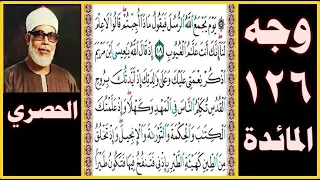 وجه
١٢٦
المائدة
۞ يَوْمَ يَجْمَعُ ٱللَّهُ ٱلرُّسُلَ فَيَقُولُ مَاذَآ أُجِبْتُمْ قَالُوا۟ لَا عِلْمَ
لَنَآ إِنَّكَ أَنتَ عَلَّـٰمُ ٱلْغُيُوبِ إِذْ قَالَ ٱللَّهُ يَـٰعِيسَى ٱبْنَ مَرْيَمَ
ٱذْكُرْ نِعْمَتِى عَلَيْكَ وَعَلَىٰ وَٰلِدَتِكَ إِذْ أَيَّدتُّكَ بِرُوحِ
ٱلْقُدُسِ تُكَلِّمُ ٱلنَّاسَ فِى ٱلْمَهْدِ وَكَهْلًا وَإِذْ عَلَّمْتُكَ
ٱلْكِتَـٰبَ وَٱلْحِكْمَةَ وَٱلتَّوْرَىٰةَ وَٱلْإِنجِيلَ وَإِذْ تَخْلُقُ
مِنَ ٱلطِّينِ كَهَيْـَٔةِ ٱلطَّيْرِ بِإِذْنِى فَتَنفُخُ فِيهَا فَتَكُونُ طَيْرًۢا
الحصري